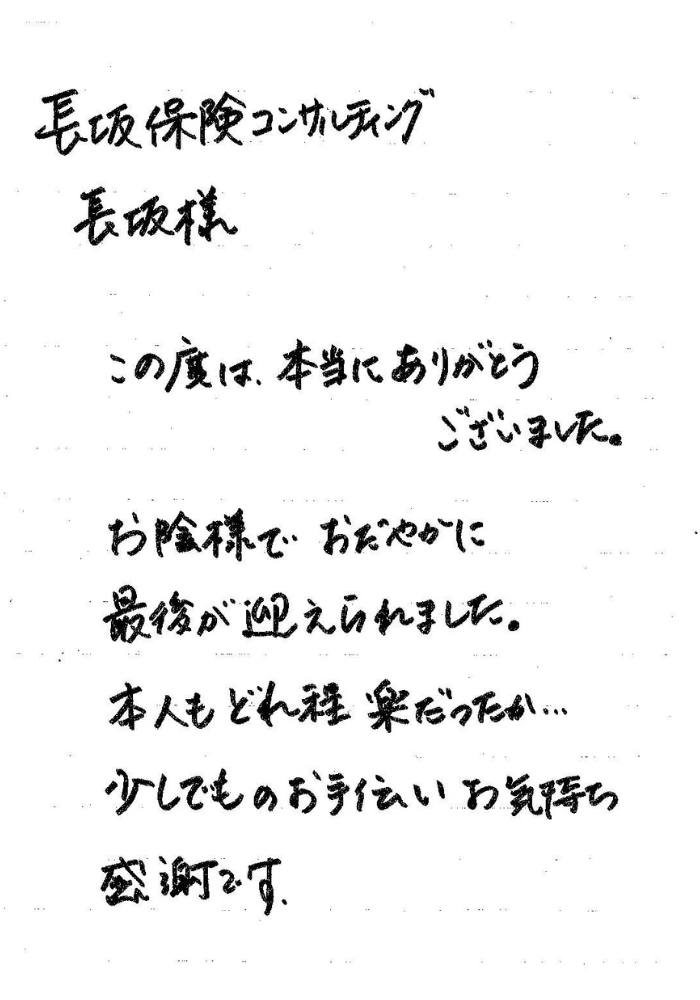 長坂保険コンサルティング
長坂様
この度は、本当にありがとう
ございました。
お陰様で おだやかに
最後が迎えられました。
本人もどれ程 楽だったか…
少しでものお手伝い お気持ち
感謝です.